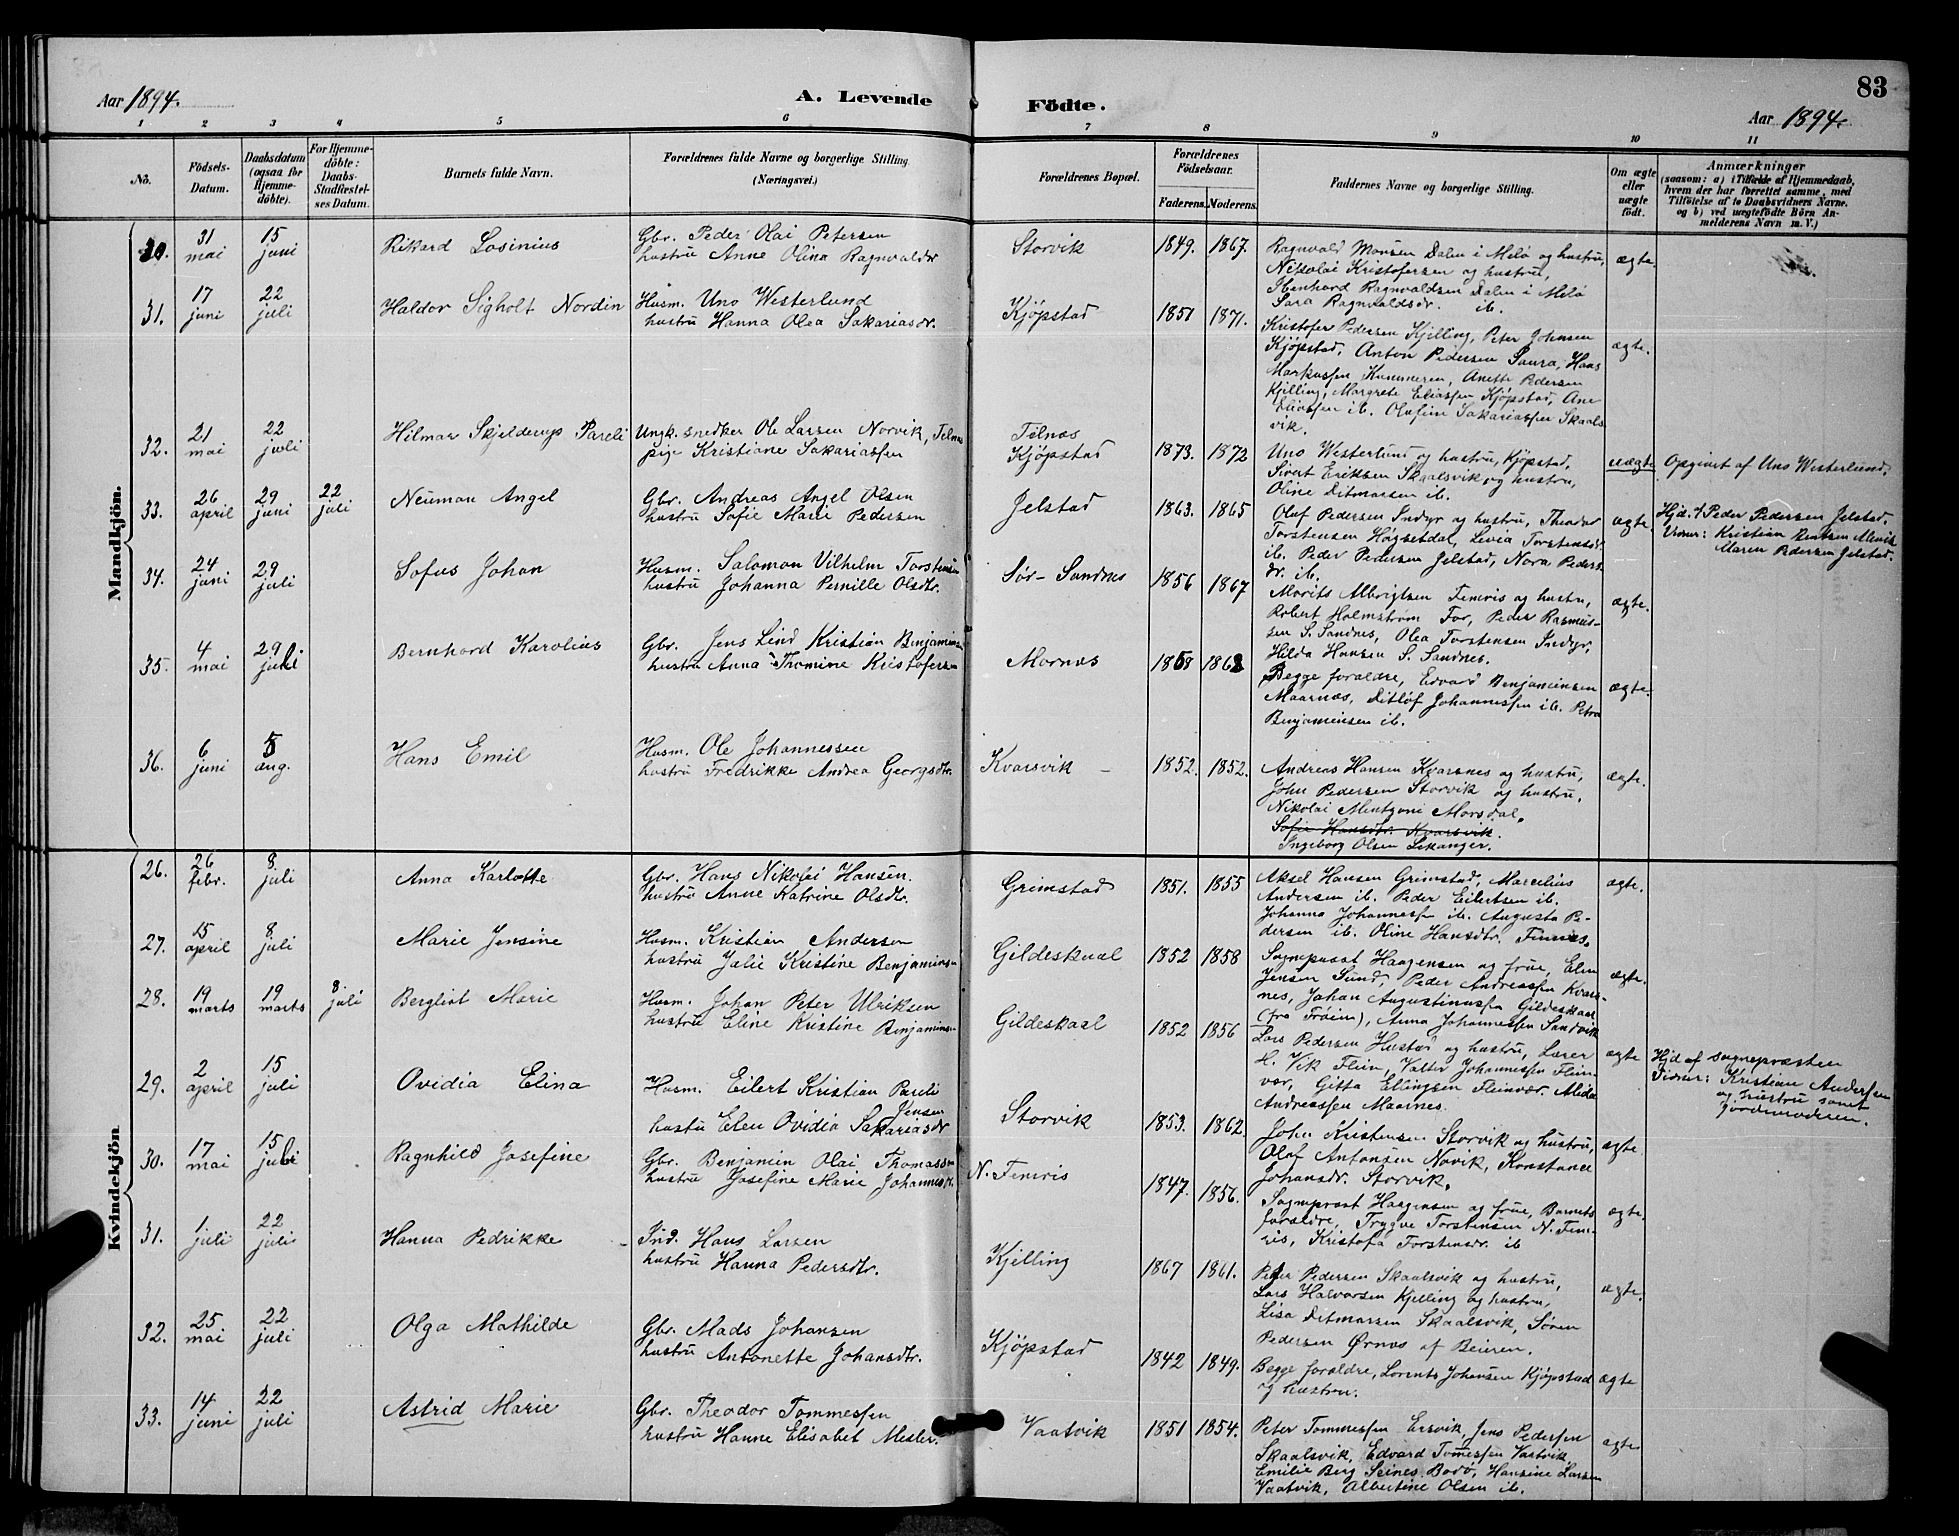 83
Aar 1894.
A. Levende Födte.
Aar 1894.
1 2 3 4 5 6 7 8 9 10 11
No.
Födsels-Datum.
Daabsdatum (ogsaa for Hjemme-döbte).
For Hjemme-döbte: Daabs-Stadfæstel-ses Datum.
Barnets fulde Navn.
Forældrenes fulde Navne og borgerlige Stilling. (Næringsvei.)
Forældrenes Bopæl.
Forældrenes Födselsaar.
Faderens. Moderens.
Faddernes Navne og borgerlige Stilling.
Om ægte eller uægte födt.
Anmærkninger
(saasom: a) i Tilfælde af Hjemmedaab,
hvem der har forrettet samme, med
Tilföielse af to Daabsvidners Navne.
og b) ved uægtefödte Börn An-
melderens Navn m. V.)
Mandkjön.
30. 31 mai 15 juni Rikard Losinius
Gbr. Peder Olai Petersen
hustru Anne Olina Ragnvaldsdr
Storvik 1849. 1867.
Ragnvald Monsen Dalen i Melö og hustru,
Nikolai Kristofersen og hustru,
Stenhard Ragnvaldsen Dalen i Melö
Sara Ragnvaldsdr. ib.
ægte.
31. 17 juni 22 juli Haldor Sigholt Nordin
Husm. Uno Westerlund
hustru Hanna Olea Sakariasdr.
Kjøpstad 1851 1871.
Kristofer Pedersen Kjelling, Peter Johnsen
Kjøpstad, Anton Pedersen Saura, Hans
Markussen Kummeren, Anette Pedersen
Kjelling, Margrete Eliassen Kjøpstad, Ane
Eliassen ib. Olufine Sakariassen Skaals
vik.
ægte.
32. 21 mai 22 juli Hilmar Skjelderup Pareli
Ungk. snedker Ole Larsen Norvik, Telnæs
pige Kristiane Sakariassen
Telnæs
Kjøpstad 1873. 1872
Uno Westerlund og hustru, Kjøpstad,
Sivert Eriksen Skaalsvik og hustru,
Oline Ditmarsen ib.
uægte
Opgivet af Uno Westerlund.
33. 26 april 29 juni 22 juli Neuman Angel
Gbr. Andreas Angel Olsen
hustru Sofie Marie Pedersen
Jelstad 1863. 1865
Oluf Pedersen Indyr og hustru, Theodor
Torstensen Høgsetdal, Levea Torstensdr.
ib. Peder Pedersen Jelstad, Nora Peders
dr. ib.
ægte
Hjd. af Peder Pedersen Jelstad.
Vidner: Kristian Rentsen Alsvik
Maren Pedersen Jelstad.
34. 24 juni 29 juli Sofus Johan
Husm. Salomon Vilhelm Torstensen
hustru Johanna Pernille Olsdtr.
Sør-Sandnes 1856 1867
Morits Albrigtsen Femris og hustru,
Robert Holmstrøm For, Peder Rasmus-
sen S. Sandnes, Olea Torstensen Indyr,
Hilda Hansen S. Sandnes.
ægte.
35. 4 mai 29 juli Bernhard Karolius
Gbr. Jens Lind Kristian Benjaminsen
hustru Anna Thomine Kristofersen
Mornæs 1858 1862
Begge forældre, Edvard Benjaminsen
Maarnæs, Ditlef Johannessen ib. Petra
Benjaminsen ib.
ægte.
36. 6 juni 5 aug. Hans Emil
Husm. Ole Johannessen
hustru Fredrikke Andrea Georgsdtr.
Kvarsvik 1852. 1852.
Andreas Hansen Kvarsnes og hustru,
John Pedersen Storvik og hustru,
Nikolai Mentzoni Morsdal,
Sofie Hansdtr. Kvarsvik.
Ingeborg Olsen Lekanger.
ægte.
Kvindekjön
26. 26 febr. 8 juli Anna Karlotte
Gbr. Hans Nikolai Hansen.
hustru Anne Katrine Olsdtr.
Grimstad 1851. 1855
Aksel Hansen Grimstad, Marcelius
Andersen ib. Peder Eilertsen ib.
Johanna Johannessen ib. Augusta Pe-
dersen ib. Oline Hansdtr. Finnes.
ægte.
27. 15 april 8 juli Marie Jensine
Husm. Kristian Andersen
hustru Jalie Kristine Benjaminsen
Gildeskaal 1852 1858
Sogneprest Haagensen og frue, Elen
Jensen Sund, Peder Andreassen Kvars-
nes, Johan Augustinussen Gildeskaal
(fra Frøien), Anna Johannessen Sandvik
ægte.
28. 19 marts 19 marts 8 juli Bergliot Marie
Husm. Johan Peter Ulriksen
hustru Eline Kristine Benjaminsen
Gildeskaal 1852 1856
Lars Pedersen Hustad og hustru, Lærer
H. Vik Flein, Valter Johannessen Flein-
vær, Gitta Ellingsen Fleinvær. Alida
Andreassen Maarnes.
ægte
Hjd af sognepræsten
Vidner: Kristian Andersen
og hustru samt
jordemoderen.
29. 2 april 15 juli Ovidia Elina
Husm. Eilert Kristian Pareli Jensen
hustru Elen Ovidia Sakariasdr
Storvik 1853. 1862.
John Kristensen Storvik og hustru,
Olaf Antonsen Novik, Konstance
Johansdr. Storvik.
ægte.
30. 17 mai 15 juli Ragnhild Josefine
Gbr. Benjamin Olai Thomassen
hustru Josefine Marie Johannesdr.
N. Femris 1847. 1856.
Sogneprest Haagensen og frue, Barnets
forældre, Trygve Torstensen N. Fem-
ris, Kristofa Torstensdr. ib
ægte.
31. 1 juli 22 juli Hanna Pedrikke
Ind. Hans Larsen
hustru Hanna Pedersdtr.
Kjelling 1867 1861.
Peder Pedersen Skaalsvik og hustru,
Lars Halvorsen Kjelling og hustru,
Lisa Ditmarsen Skaalsvik, Søren
Pedersen Ørnæs af Beieren.
ægte.
32. 25 mai 22 juli Olga Mathilde
Gbr. Mads Johansen
hustru Antonette Johansdtr.
Kjøpstad 1842 1849.
Begge forældre, Lorents Johansen Kjøpstad
og hustru.
ægte
33. 14 juni 22 juli Astrid Marie
Gbr. Theodor Tommessen
hustru Hanne Elisabet Mesler.
Vaatvik 1851 1854.
Peter Tommessen Ersvik, Jens Pedersen
Skaalsvik, Edvard Tommessen Vaatvik
Emilie Berg Seines Bodö, Hansine Larsen
Vaatvik, Albertine Olsen ib.
ægte